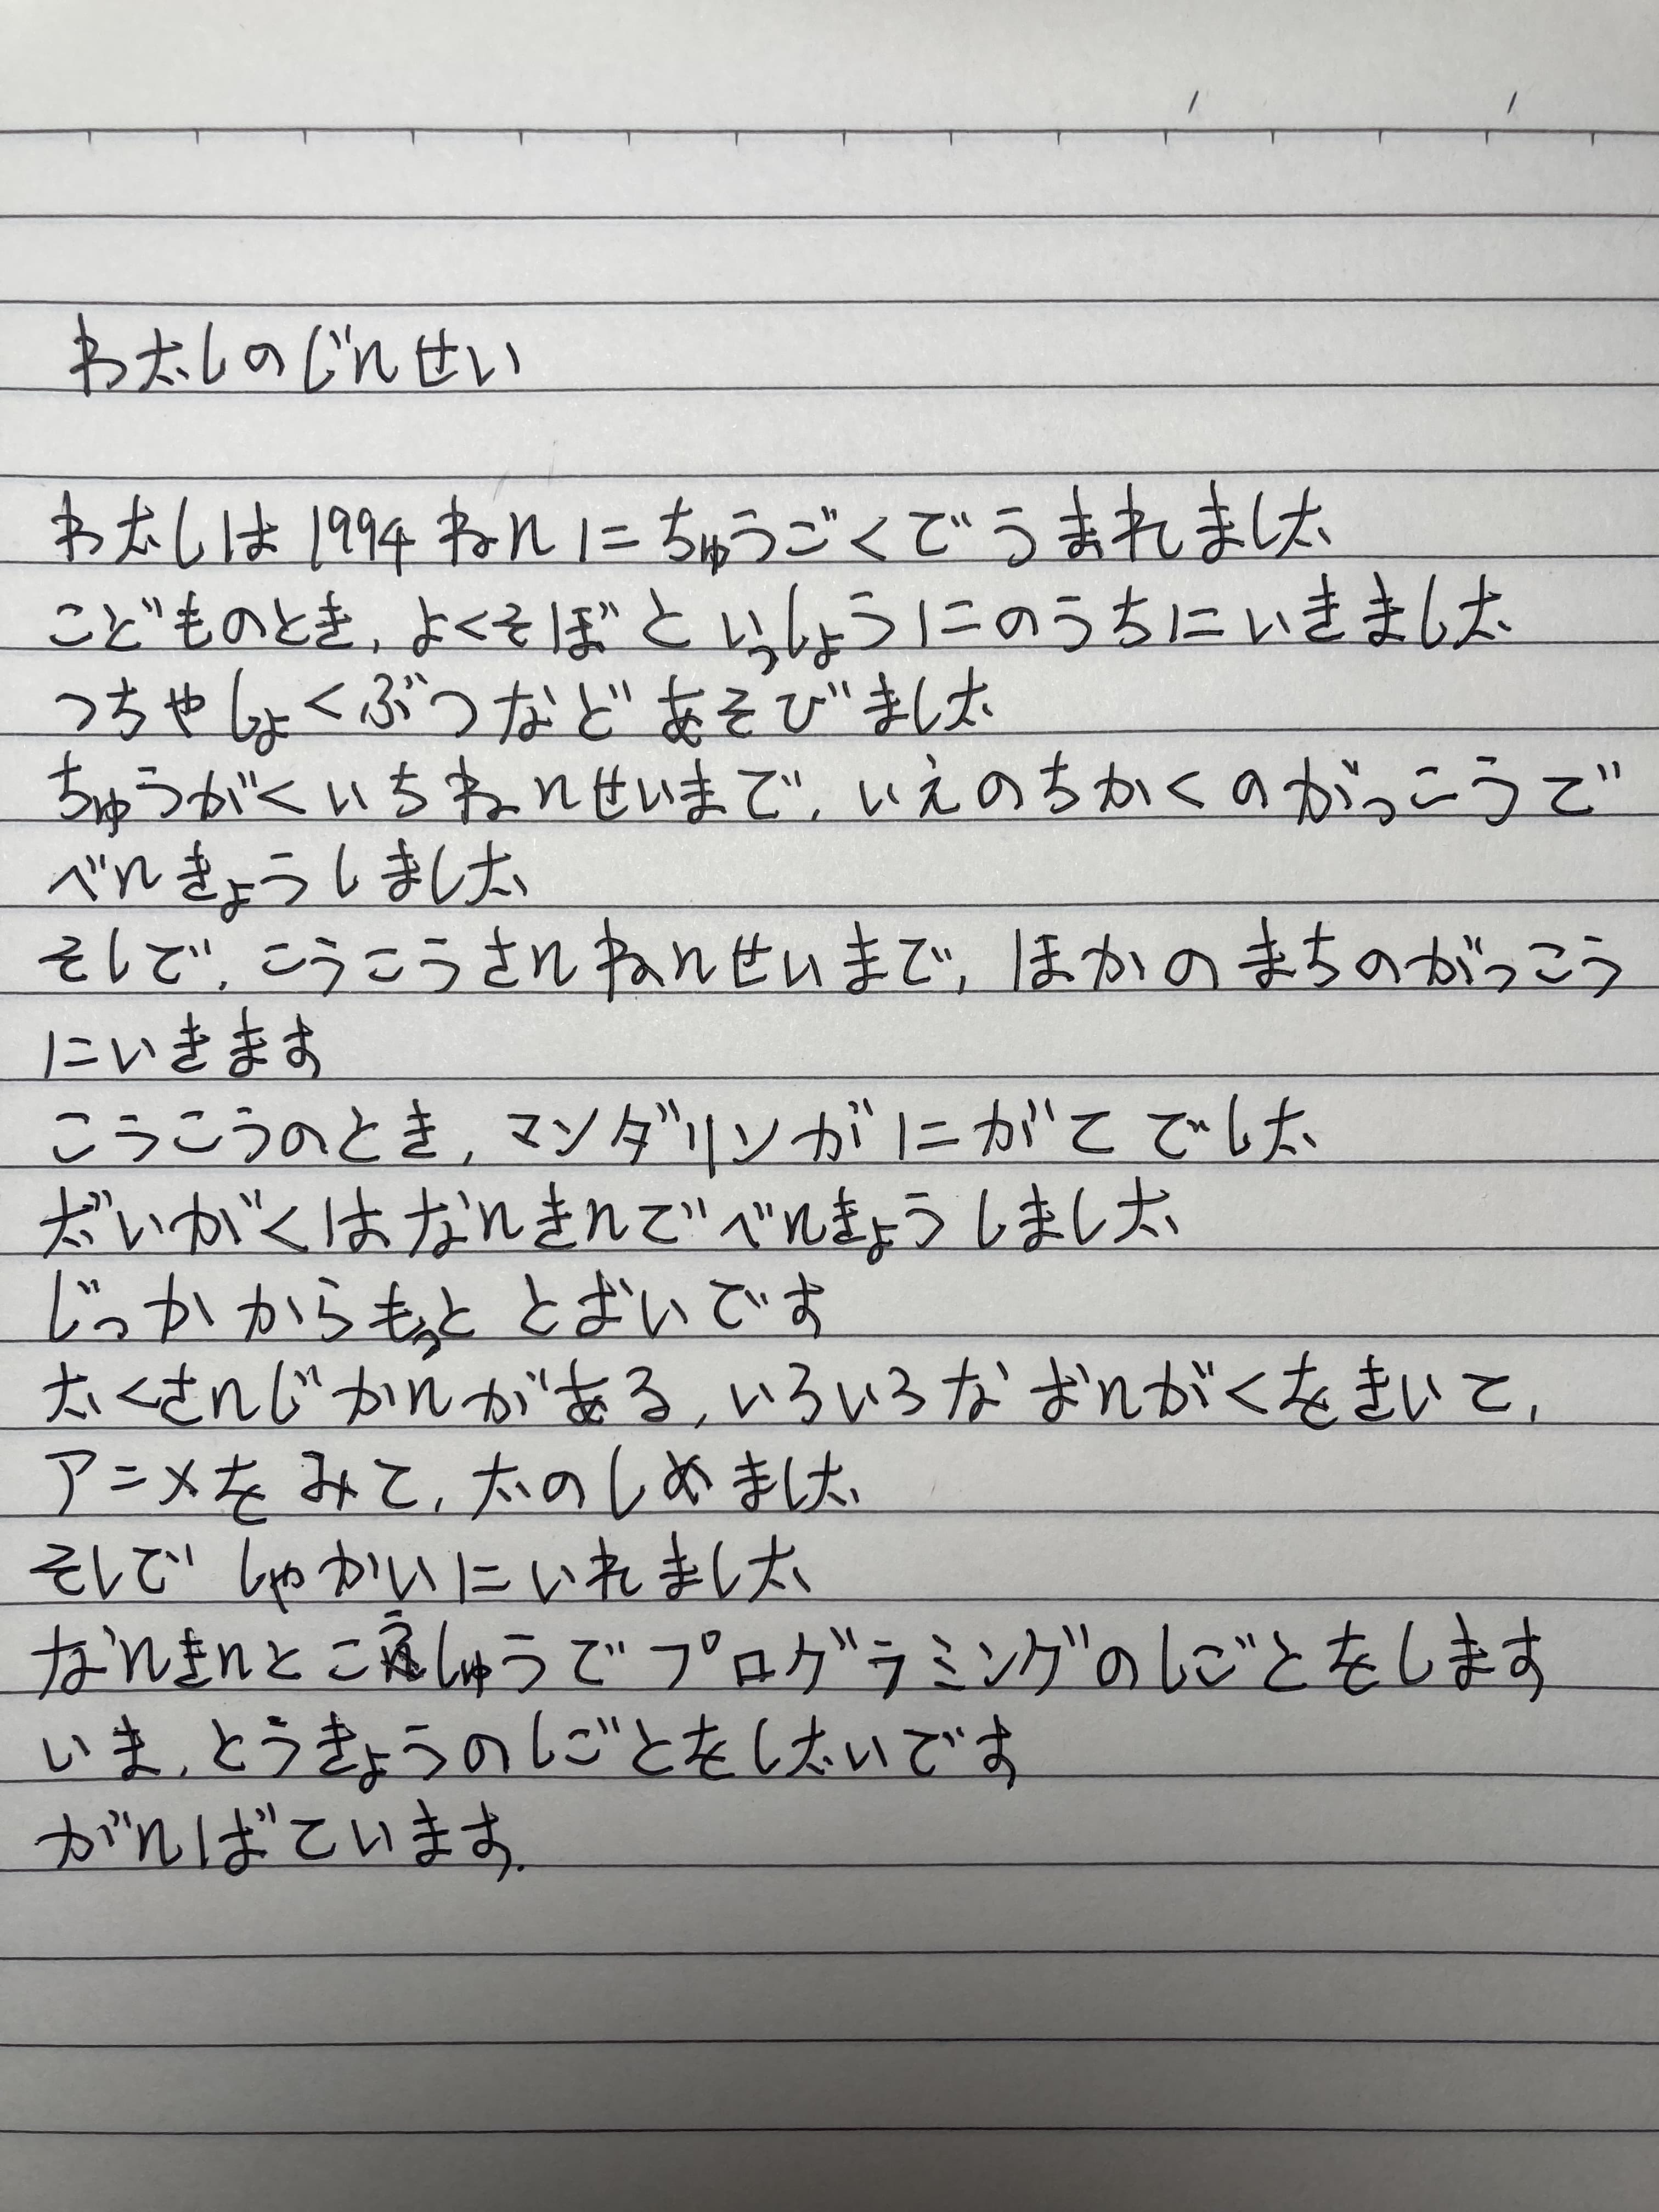 わたしのじんせい
わたしは1994ねんにちゅうごくでうまれました
こどものとき,よくそぼといっしょうにのうちにいきました
つちやしょくぶつなどあそびました
ちゅうがくいちねんせいまで,いえのちかくのがっこうで
べんきょうしました
そしで,こうこうさんねんせいまで,ほかのまちのがっこう
にいきます
こうこうのとき,マンダリンがにがてでした
だいがくはなんきんでべんきょうしました
じっかからもっととおいです
たくさんじかんがある,いろいろなおんがくをきいて,
アニメをみて,たのしめました
そしでしゃかいにいれました
なんきんとこうしゅうでプログラミングのしごとをします
いま,とうきょうのしごとをしたいです
がんばています.